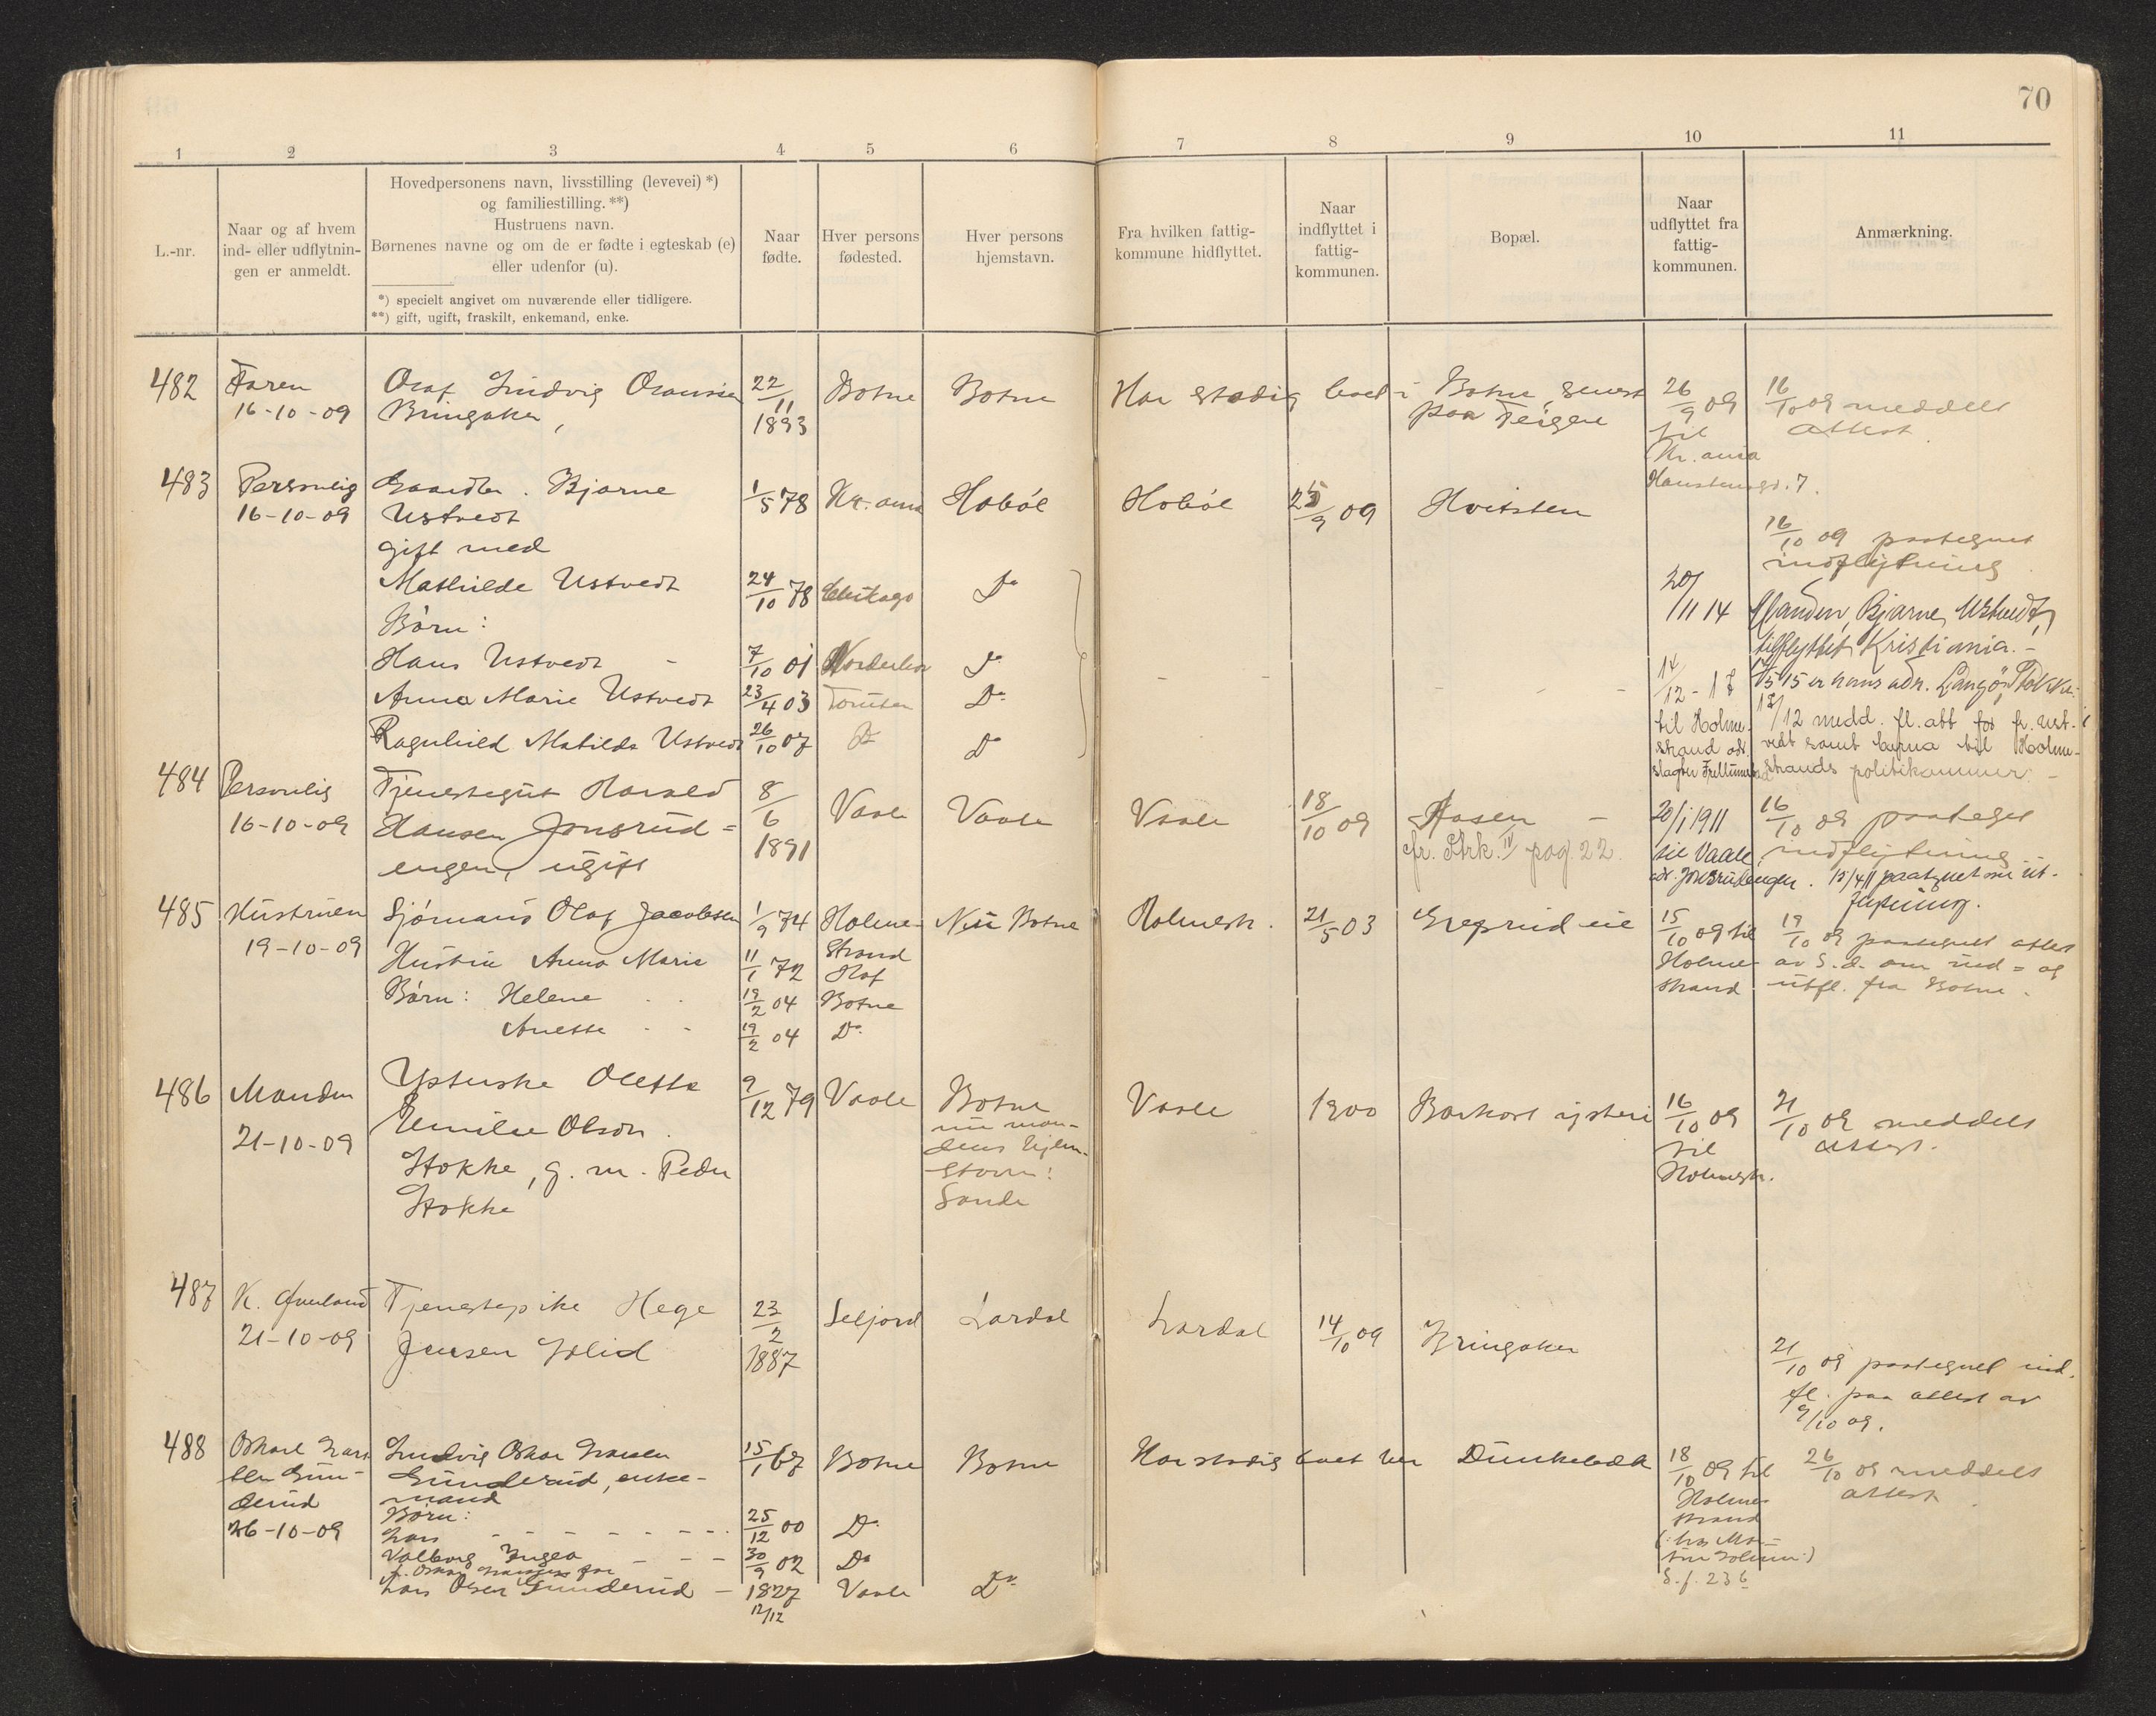 70
1 2 3 4 5 6 7 8 9 10 11
L.-nr.
Naar og af hvem
ind- eller udflytnin-
gen er anmeldt.
Hovedpersonens navn, livsstilling (levevei) *)
og familiestilling. **)
Hustruens navn.
Børnenes navne og om de er fødte i egteskab (e)
eller udenfor (u).
*) specielt angivet om nuværende eller tidligere.
**) gift, ugift, fraskilt, enkemand, enke.
Naar
fødte.
Hver persons
fødested.
Hver persons
hjemstavn.
Fra hvilken fattig-
kommune hidflyttet.
Naar
indflyttet i
fattig-
kommunen.
Bopæl.
Naar
udflyttet fra
fattig-
kommunen.
Anmærkning.
482
Faren
16-10-09
Olaf Ludvig
Bringaker,
22/11
1893
Botne
Botne
Har stadig boet i Botne, senest
paa Teigen
26/9 09
til
Kr.ania
16/10 09 meddelt
attest
483
Personlig
16-10-09
Gaardbr. Bjarne
Ustvedt
gift med
Mathilde Ustvedt
Børn:
Hans Ustvedt -
Anna Marie Ustvedt
Ragnhild Matilde Ustvedt
1/5 78
24/10 78
7/10 01
23/4 03
26/10 07
Kr.ania
Chikago
Norderhov
Tomter
Do
Hobøl
Do
Do
Do
Do
Hobøl
25/9 09
Hvitsten
20/11 14
14/12 - 18
til Holme-
strand adr.
16/10 09 paategnet
indflytning
Manden, Bjarne Ustvedt,
tilflyttet Kristiania. -
5/15 er hans adr. Langø,
18/12 medd. fl. att for fr. Ust-
vedt samt barna til Holme-
strands politikammer -
484
Personlig
16-10-09
Tjenestegut Harald
Hansen Jonsrud=
engen, ugift
8/6
1891
Vaale
Vaale
Vaale
18/10 09
Aasen -
cfr. Prk. IV pag. 22.
20/1 1911
til Vaale,
adr. Jonsrudengen.
16/10 09 paateget
indflytning
18/4 11 paategnet om ut-
flytning.
485
Hustruen
19-10-09
Sjømand Olaf Jacobsen
Hustru Anna Marie
Børn: Helene
Anette
1/9 74
11/1 72
19/2 04
19/2 04
Holme-
strand
Hof
Botne
Do
Nu Botne
Holmestr.
21/5 03
Greprud eie
15/10 09 til
Holme-
strand
19/10 09 paategnet attest
av S. d. om ind= og
utfl. fra Botne.
486
Manden
21-10-09
Ysterske Olette
Emilie Olson
Stokke, g. m. Peder
Stokke
9/12 79
Vaale
Botne
nu man-
dens hjem-
stavn:
Sande
Vaale
1900
Barkost ysteri
16/10 09
til
Holmestr.
21/10 09 meddelt
attest.
487
K. Øverland
21-10-09
Tjenestepike Hege
Jensen Lid
23/2
1887
Seljord
Lardal
Lardal
14/10 09
Bringaker
21/10 09 paategnet ind-
fl. paa attest av
9/10 09.
488
Oskar Lars
sen Gun-
derud
26-10-09
Ludvig Oskar Larsen
Gunderud, enke-
mand
Børn:
Lars
Valborg Inga
Oskar Larsens far
Lars Olsen Gunderud -
15/1 67
25/12 00
30/9 02
1827
12/12
Botne
Do
Do
Vaale
Botne
Do
Har stadig boet her
Dunkebæk
18/10 09 til
Holme-
strand
S. f. 236
26/10 09 meddelt
attest.